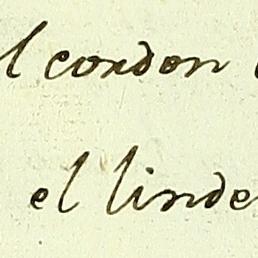 l cordon
el linde